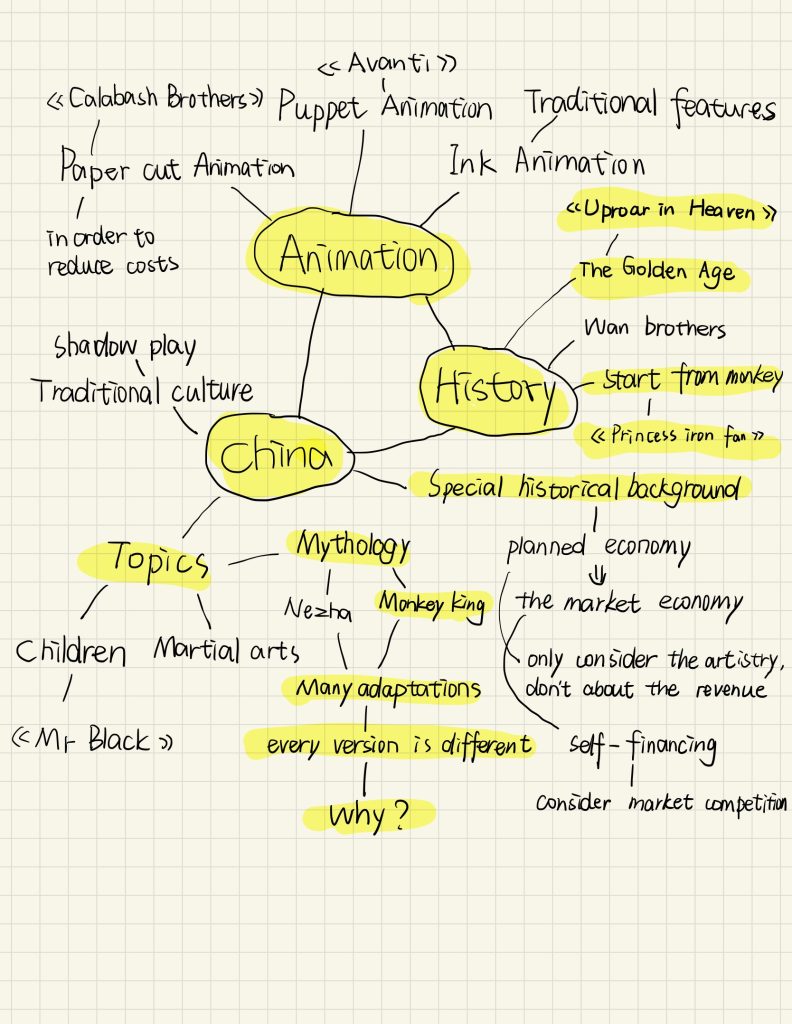 《Avanti》
《Calabash Brothers》
Puppet Animation
Traditional features
Paper cut Animation
Ink Animation
in order to
reduce costs
Animation
《Uproar in Heaven》
The Golden Age
Wan brothers
History
Start from monkey
《Princess iron fan》
Shadow play
Traditional culture
China
Special historical background
planned economy
the market economy
only consider the artistry,
don't about the revenue
self-financing
consider market competition
Topics
Mythology
Nezha
Monkey king
Children
Martial arts
《Mr Black》
Many adaptations
every version is different
why?